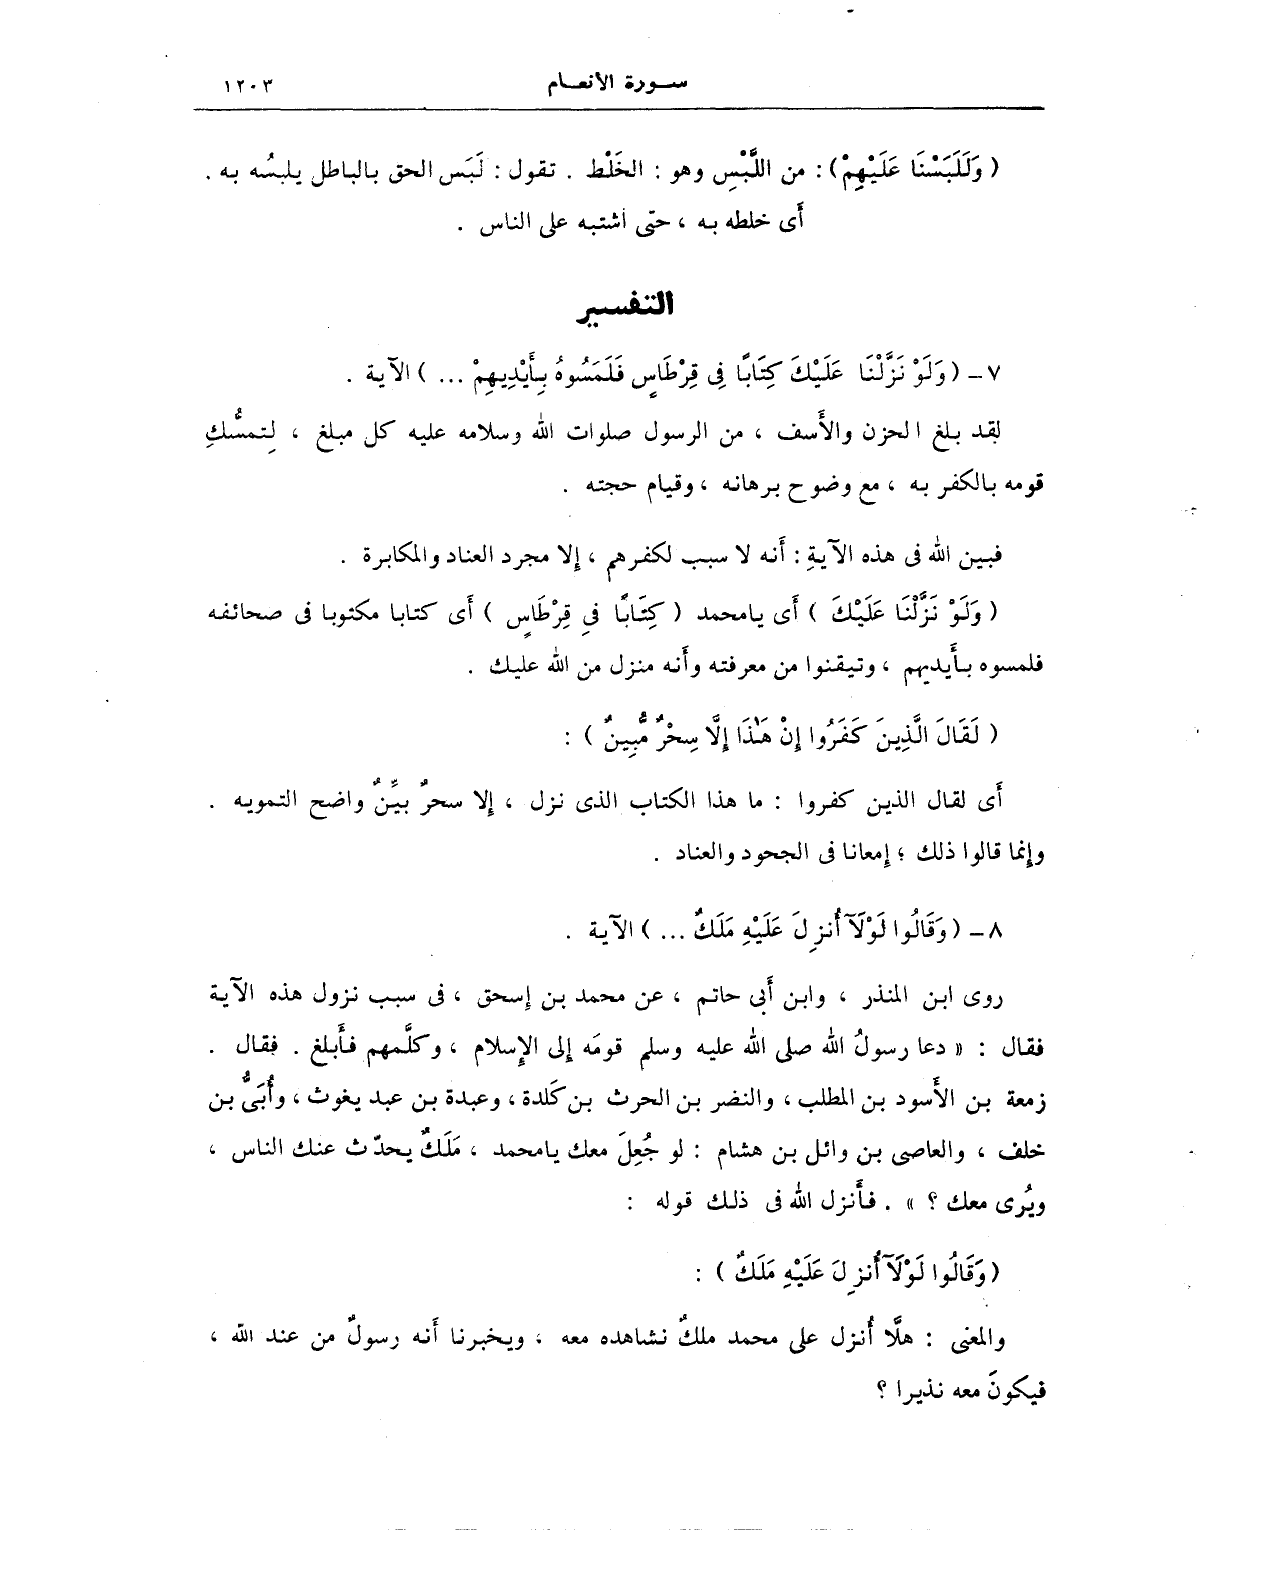 سورة الأنعام ١٢٠٣
( وَلَلَبَسْنَا عَلَيْهِمْ ) : من اللَّبْسِ وهو : الخَلْط . تقول : لَبَس الحق بالباطل يلبسُه به .
أَى خلطه به ، حتّى اشتبه على الناس .
التفسير
٧ – ( وَلَوْ نَزَّلْنَا عَلَيْكَ كِتَابًا فِى قِرْطَاسٍ فَلَمَسُوهُ بِأَيْدِيهِمْ ... ) الآية .
لقد بلغ الحزن والأَسف ، من الرسول صلوات الله وسلامه عليه كل مبلغ ، لِتمسُّكِ
قومه بالكفر به ، مع وضوح برهانه ، وقيام حجته .
فبين الله فى هذه الآيةِ : أَنه لا سبب لكفرهم ، إلا مجرد العناد والمكابرة .
( وَلَوْ نَزَّلْنَا عَلَيْكَ ) أَى يامحمد ( كِتَابًا فِى قِرْطَاسٍ ) أَى كتابا مكتوبا فى صحائفه
فلمسوه بأَيديهم ، وتيقنوا من معرفته وأَنه منزل من الله عليك .
( لَقَالَ الَّذِينَ كَفَرُوا إِنْ هَٰذَا إِلَّا سِحْرٌ مُّبِينٌ ) :
أَى لقال الذين كفروا : ما هذا الكتاب الذى نزل ، إلا سحرٌ بيِّنٌ واضح التمويه .
وإنما قالوا ذلك ؛ إمعانا فى الجحود والعناد .
٨ – ( وَقَالُوا لَوْلَآ أُنزِلَ عَلَيْهِ مَلَكٌ ... ) الآية .
روى ابن المنذر ، وابن أَبى حاتم ، عن محمد بن إسحق ، فى سبب نزول هذه الآية
فقال : « دعا رسولُ الله صلى الله عليه وسلم قومَه إلى الإسلام ، وكلَّمهم فأَبلغ . فقال .
زمعة بن الأَسود بن المطلب ، والنضر بن الحرث بن كَلدة ، وعبدة بن عبد يغوث ، وأُبَىُّ بن
خلف ، والعاصى بن وائل بن هشام : لو جُعِلَ معك يامحمد ، مَلَكٌ يحدّث عنك الناس ،
ويُرى معك ؟ » . فأَنزل الله فى ذلك قوله :
( وَقَالُوا لَوْلَآ أُنزِلَ عَلَيْهِ مَلَكٌ ) :
والمعنى : هلَّا أُنزل على محمد ملكٌ نشاهده معه ، ويخبرنا أَنه رسولٌ من عند الله ،
فيكونَ معه نذيرا ؟